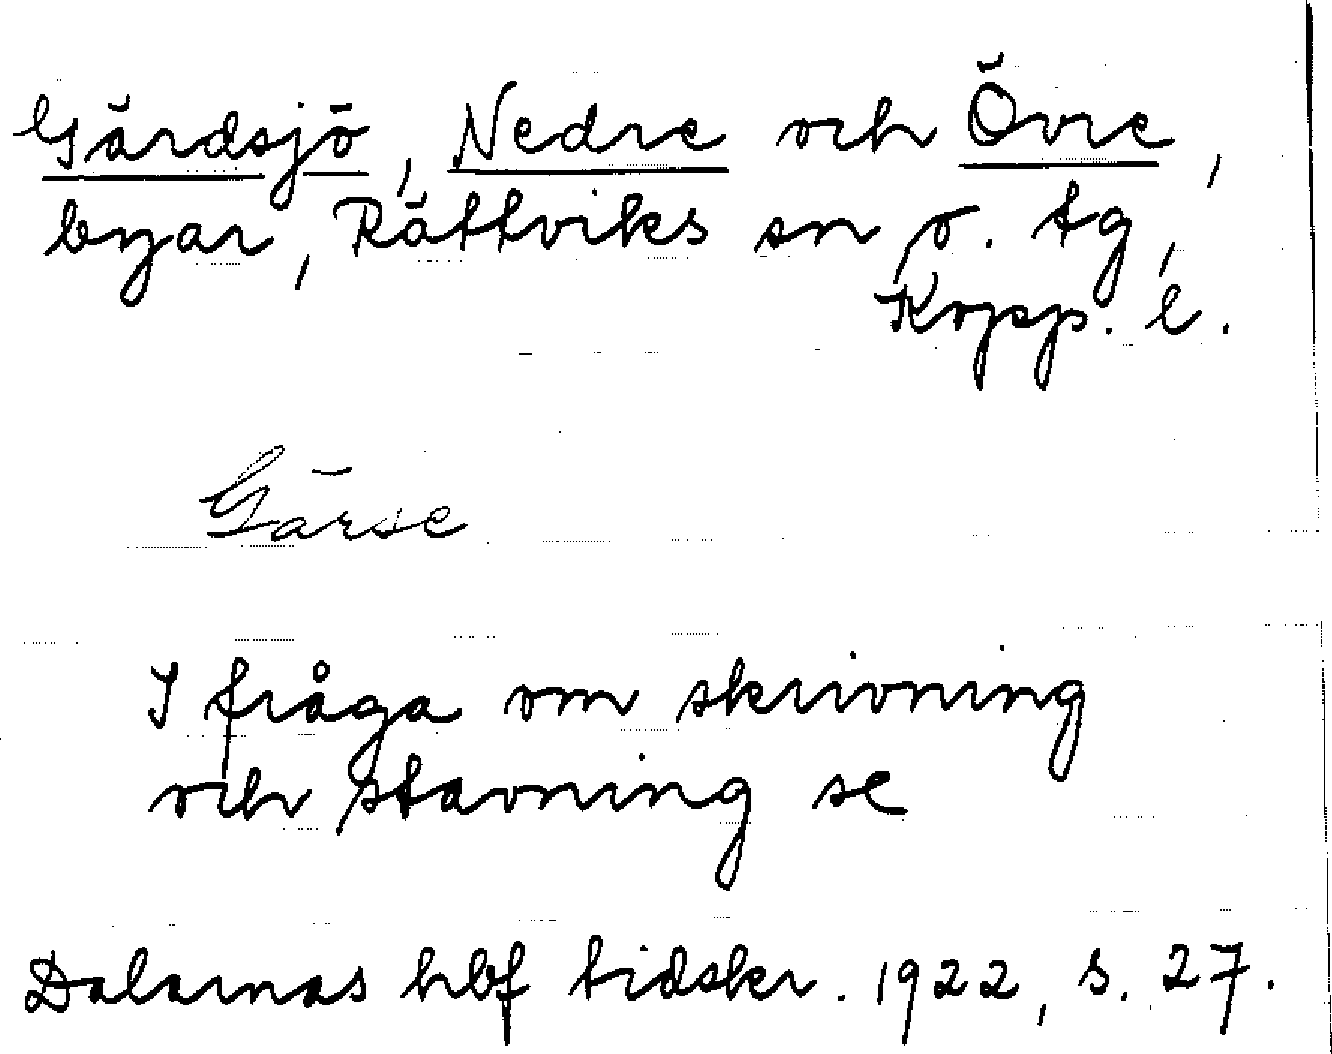 Gärdsjö, Nedre och Övre,
byar, Rättviks sn o. tg,
Kopp. l.
Gärse
I fråga om skrivning
och stavning se
Dalarnas hbf tidskr. 1922, s. 27.